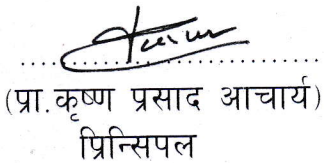 (प्रा.कृष्ण प्रसाद आचार्य)
प्रिन्सिपल